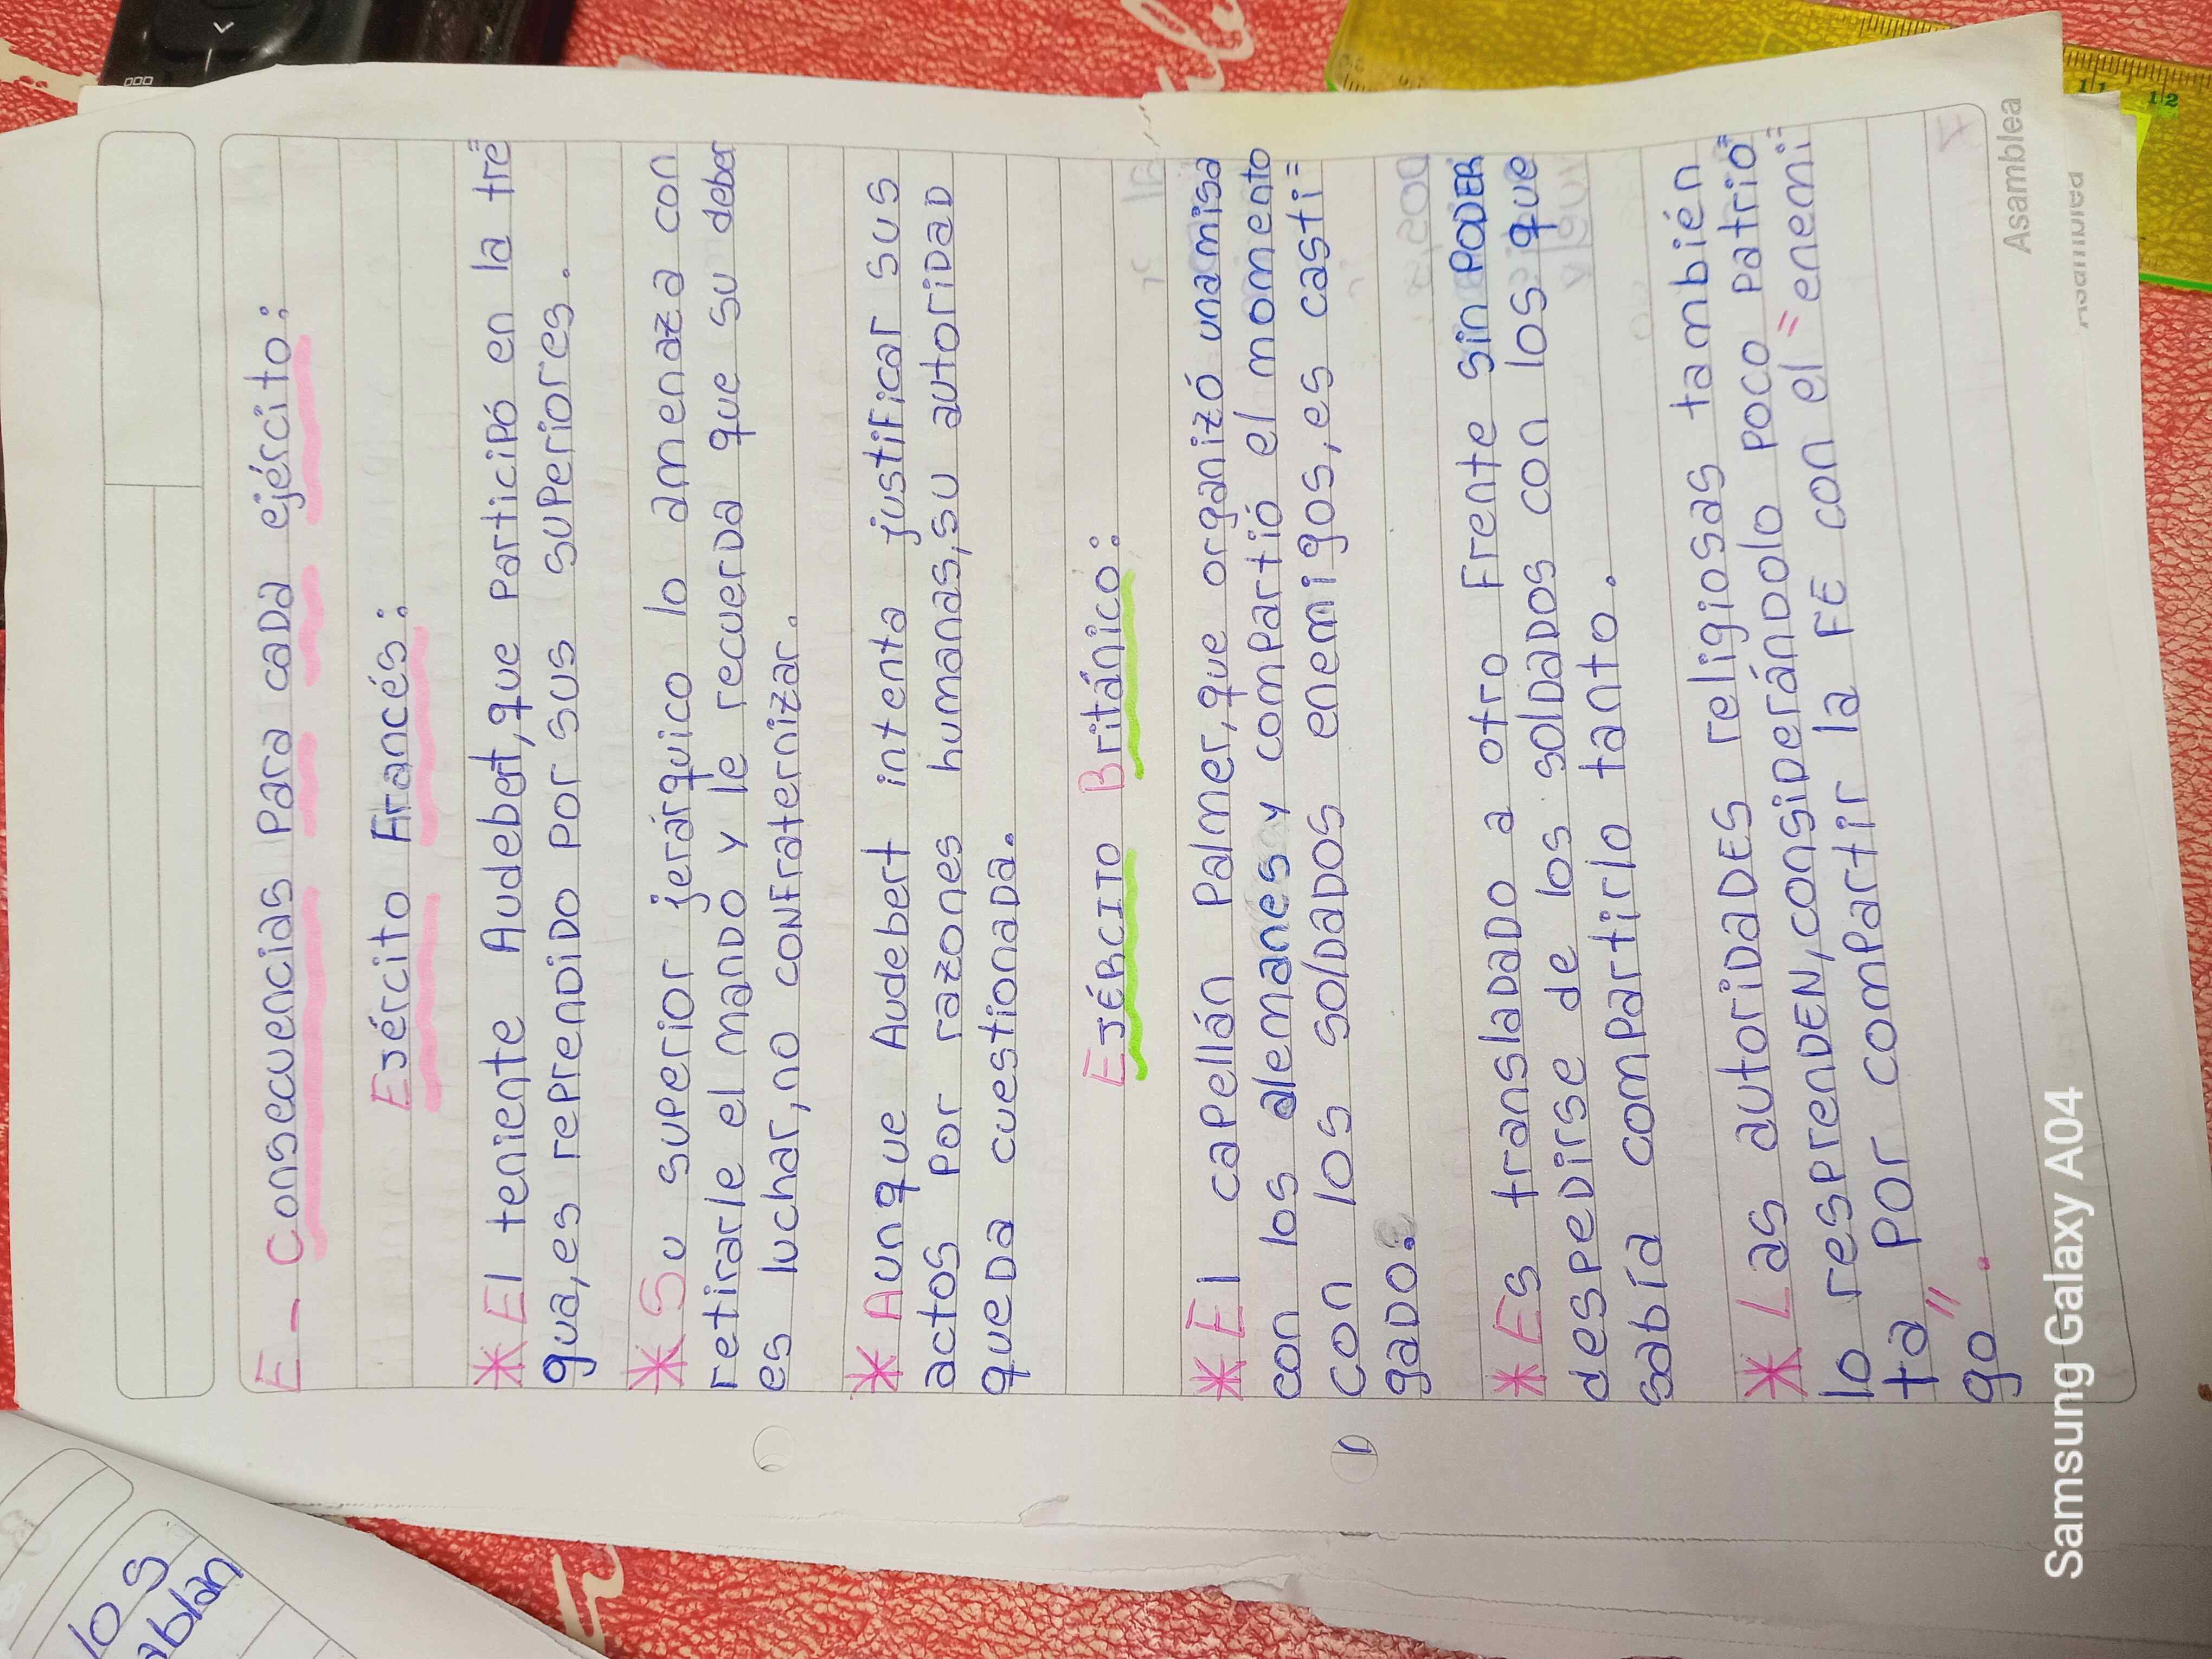 E- Consecuencias para cada ejército:
Ejército Francés:
* El teniente Audebert, que participó en la tre=
gua, es reprendido por sus superiores.
* Su superior jerárquico lo amenaza con
retirarle el mando y le recuerda que su deber
es luchar, no confraternizar.
* Aunque Audebert intenta justificar sus
actos por razones humanas, su autoridad
queda cuestionada.
Ejército Británico:
* El capellán Palmer, que organizó una misa
con los alemanes y compartió el momento
con los soldados enemigos, es casti=
gado.
* Es transladado a otro frente sin poder
despedirse de los soldados con los que
sabía compartirlo tanto.
* Las autoridades religiosas también
lo resprenden, considerándolo poco patrio=
ta por compartir la fe con el "enemi=
go".
Asamblea
Samsung Galaxy A04
los
ablan
11 12